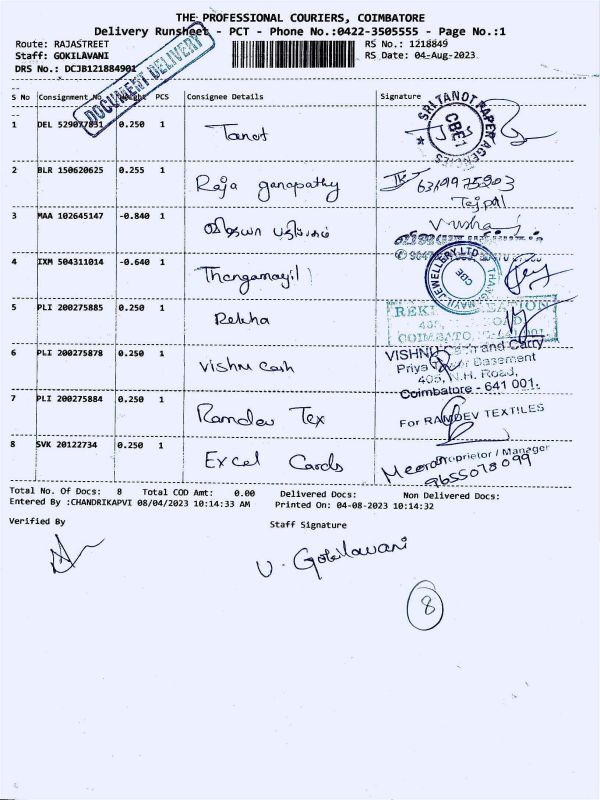 THE PROFESSIONAL COURIERS, COIMBATORE
Delivery Runsheet - PCT - Phone No.:0422-3505555 - Page No.:1
Route: RAJASTREET RS No.: 1218849
Staff: GOKILAVANI RS Date: 04-Aug-2023
DRS No.: DCJB121884901
DOCUMENT DELIVERY
S No Consignment No PCS Consignee Details Signature
1 DEL 529077831 0.250 1 Tanot
SRI TANOT PAPER AGENCIES CBE-1
2 BLR 150620625 0.255 1 Raja ganapathy
6319975203
Tejpal
3 MAA 102645147 -0.840 1 விஜயா பதிப்பகம்
Vusha
4 IXM 504311014 -0.640 1 Thangamayil
THANGAMAYIL JEWELLERY LTD CBE
5 PLI 200275885 0.250 1 Rekha
6 PLI 200275878 0.250 1 Vishnu cash
VISHNU Cash and Carry
Priya Tower Basement
405, N.H. Road,
Coimbatore - 641 001.
7 PLI 200275884 0.250 1 Ramdev Tex
For RAMDEV TEXTILES
Proprietor / Manager
8 SVK 20122734 0.250 1 Excel Cards
Meera
9655078099
Total No. Of Docs: 8 Total COD Amt: 0.00 Delivered Docs: Non Delivered Docs:
Entered By :CHANDRIKAPVI 08/04/2023 10:14:33 AM Printed On: 04-08-2023 10:14:32
Verified By Staff Signature
V. Gokilavani
8